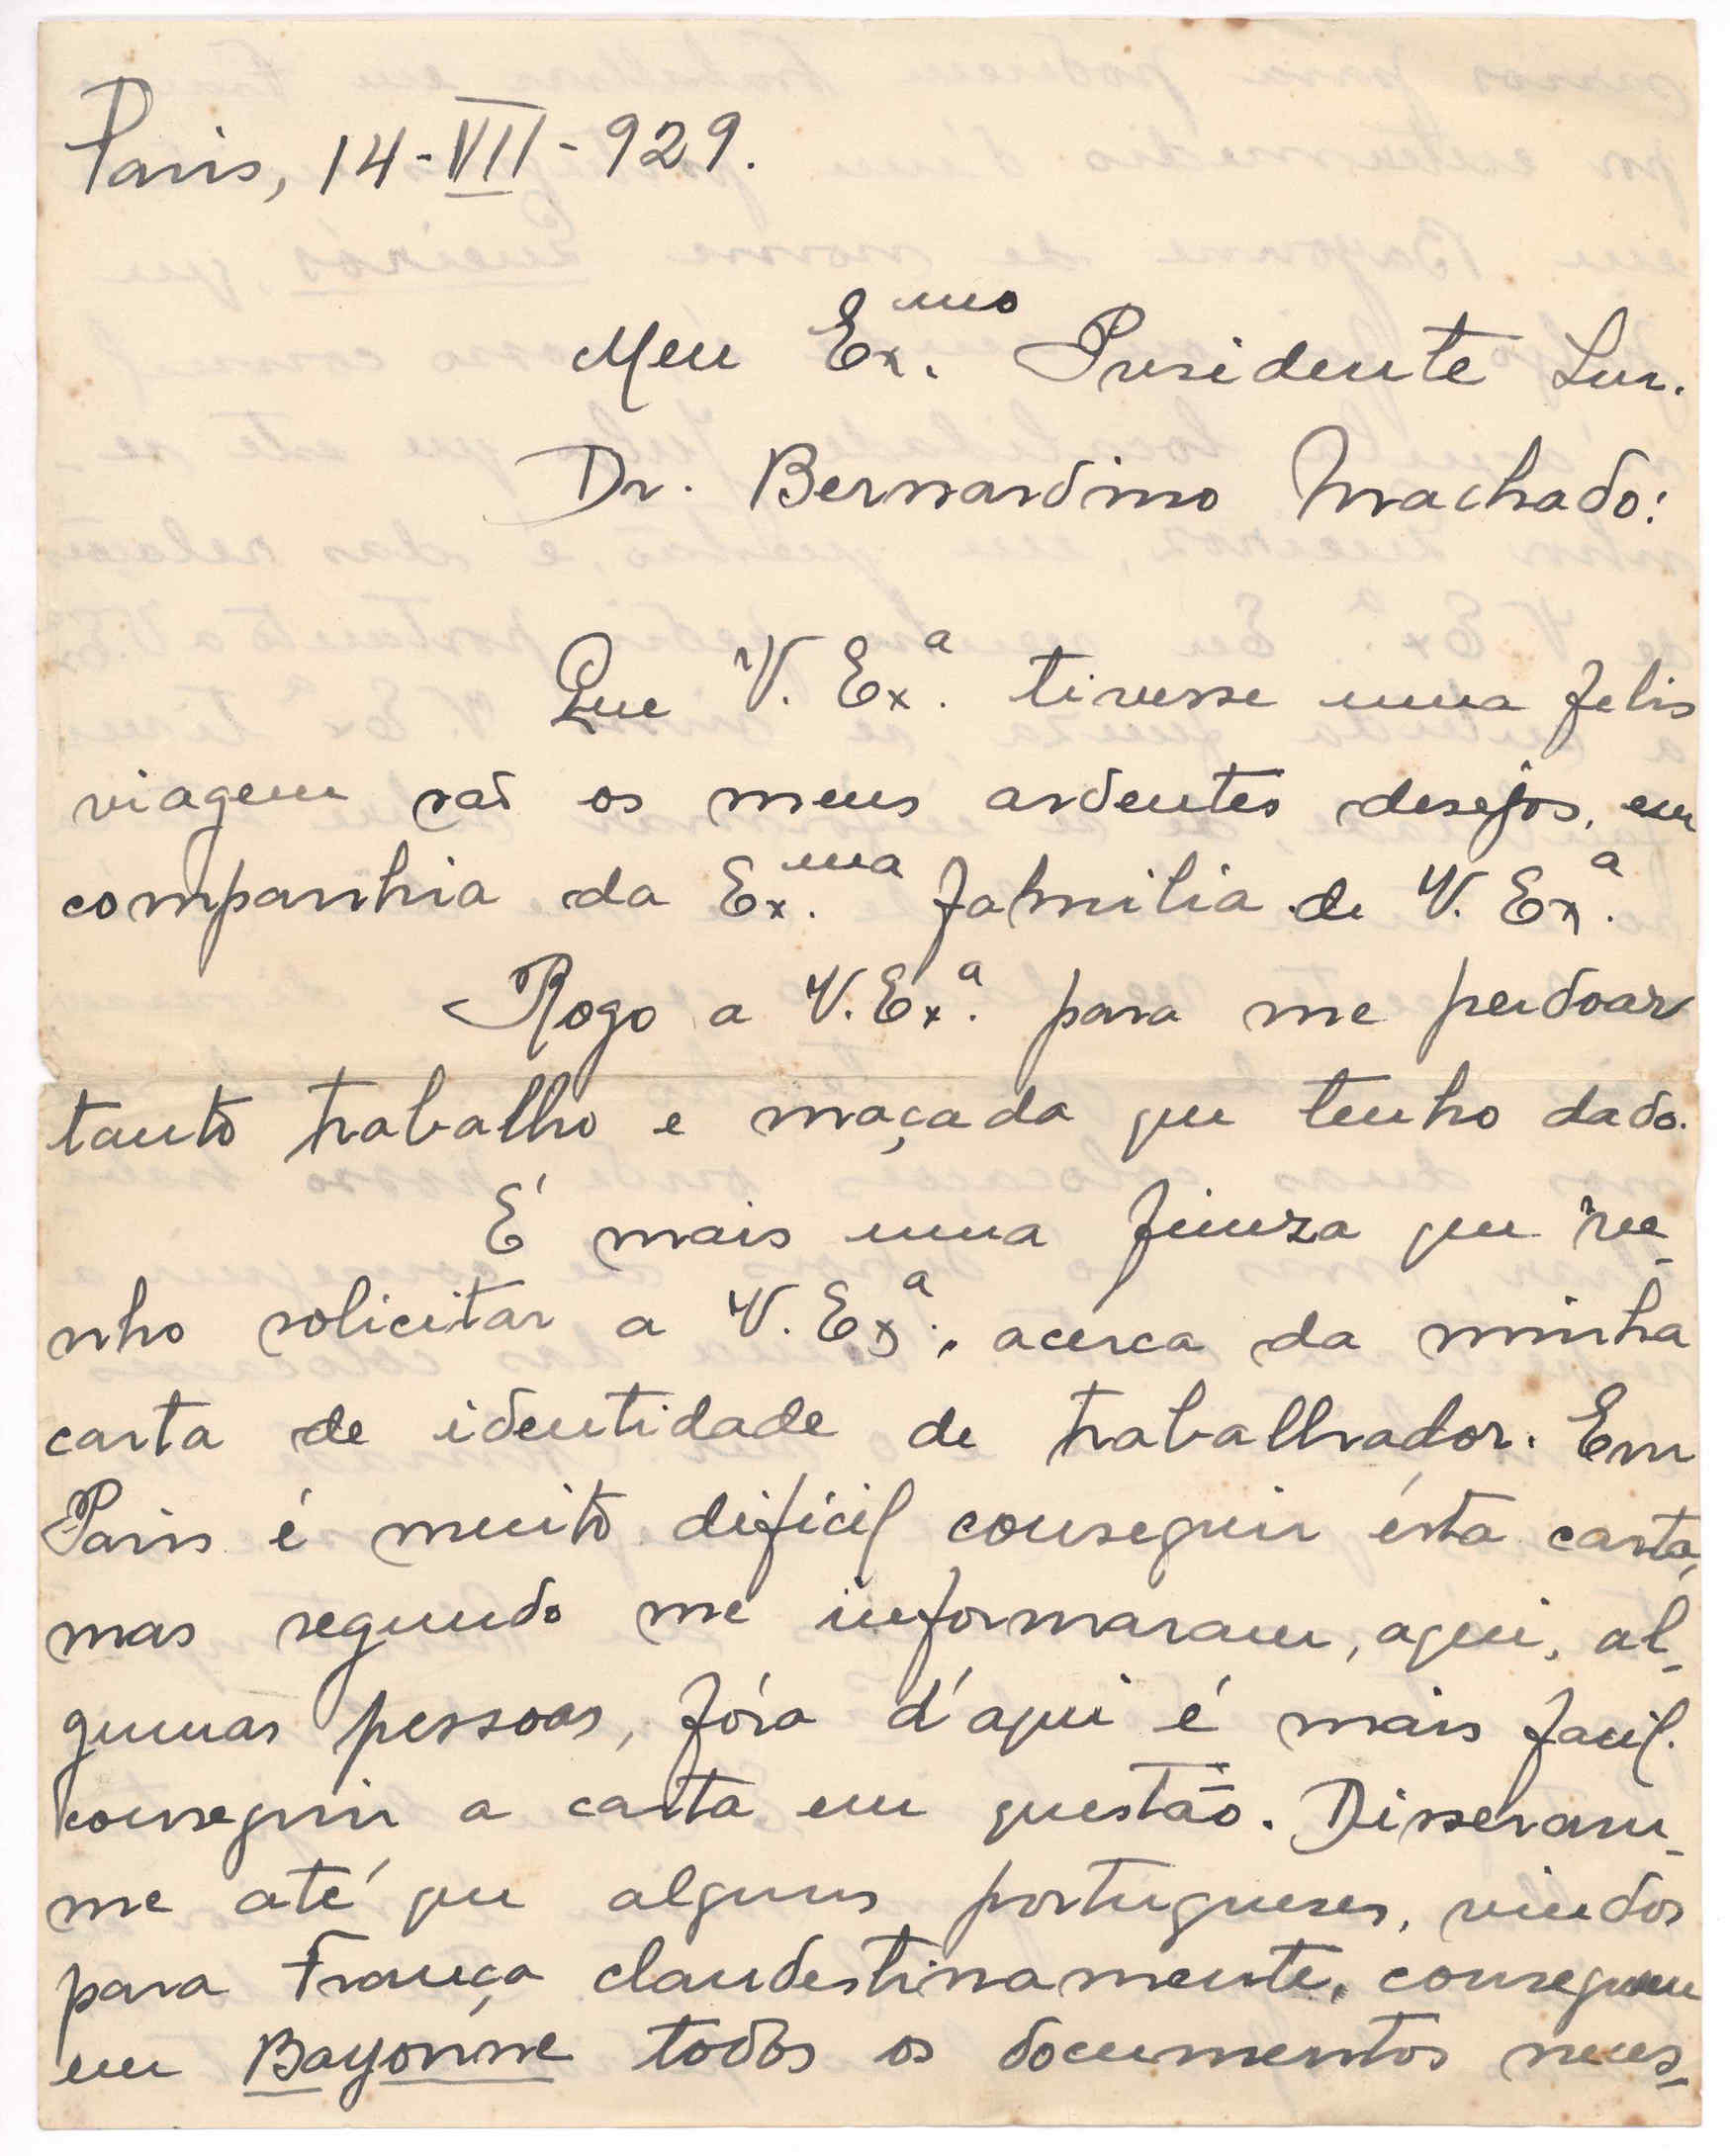 Paris, 14-VII-929.
Meu Ex.mo Presidente Snr.
Dr. Bernardino Machado:
Que V. Ex.a tivesse uma felis
viagem são os meus ardentes desejos, em
companhia da Ex.ma familia de V. Ex.a
Rogo a V. Ex.a para me perdoar
tanto trabalho e maçada que tenho dado.
É mais uma fineza que ve-
nho solicitar a V. Ex.a, acerca da minha
carta de identidade de trabalhador. Em
Paris é muito difícil conseguir ésta carta,
mas segundo me informaram, aqui, al-
gumas pessoas, fóra d'aqui é mais facil
conseguir a carta em questão. Disseram-
me até que alguns portugueses, vindos
para França clandestinamente, conseguem
em Bayonne todos os documentos neces-